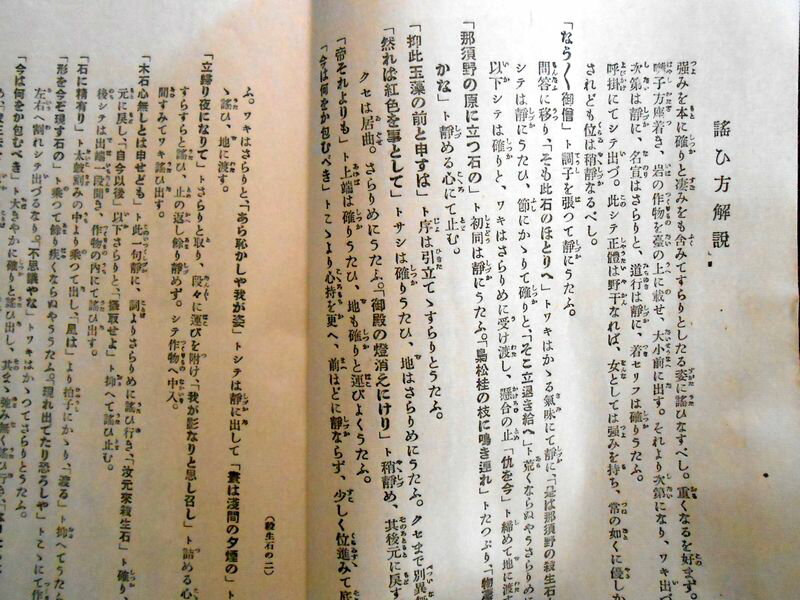 謠ひ方解説
強みを本に確りと凄みをも含みてすらりとしたる姿に謠ひなすべし。重くなるを好まず。
囃子方座着き、岩の作物を臺の上に載せ、大小前に出す。それより次第になり、ワキ出づ
次第は靜に、名宣はさらりと、道行は靜に、着セリフは確りうたふ。
呼掛にてシテ出づ。此シテ正體は野干なれば、女としては強みを持ち、常の如くに優しか
されども位は稍靜なるべし。
「なう〳〵御僧」ト調子を張つて靜にうたふ。
問答に移り、「そも此石のほとりへ」トワキはかゝる氣味にて靜に、「是は那須野の殺生石
シテは靜にうたひ、節にかゝりて確りと、「そこ立退き給へ」ト荒くならぬやうさらりめに
以下シテは確りと、ワキはさらりめに受け渡し、懸合の止「仇を今」ト締めて地に渡
「那須野の原に立つ石の」ト初同は靜にうたふ。「梟松桂の枝に鳴き連れ」トたつぷり、「物
かな」ト靜める心にて止む。
「抑此玉藻の前と申すは」ト序は引立てゝすらりとうたふ。
「然れば紅色を事として」トサシは確りうたひ、地はさらりめにうたふ。クセまで別異
クセは居曲。さらりめにうたふ。「御殿の燈消えにけり」ト稍靜め、其後元に戻す
「帝それよりも」ト上端は確りうたひ、地も確りと運びよくうたふ。
「今は何をか包むべき」トこゝより心持を更へ、前ほどに靜ならず、少しく位進みて底
ふ。ワキはさらりと、「あら恥かしや我が姿」トシテは靜に出して「晝は淺間の夕煙の」ト
ゝ謠ひ、地に渡す。
「立歸り夜になりて」トさらりと取り、段々に運びを附け、「我が影なりと思し召し」ト詰める心
すらすらと謠ひ、止の返し餘り靜めず。シテ作物へ中入。
間すみてワキ謠ひ出す。
「木石心無しとは申せども」ト此一句靜に、詞よりさらりめに謠ひ行き、「汝元來殺生石」ト確り
元に戻し、「自今以後」以下さらりと、「攝取せよ」ト抑へて謠ひ止む。
後シテは出端一段聞き、作物の内にて謠ひ出す。
「石に精有り」ト太鼓刻みの中より乘つて出し、「風は」より拍子にかゝり、「渡る」ト抑へてうたふ
「形を今ぞ現す石の」ト乘つて餘り疾くならぬやううたふ。「現れ出でたり恐ろしや」トこゝにて作
左右へ割れシテ出づるなり。「不思議やな」トワキはかゝつてさらりとうたふ。
「今は何をか包むべき」ト大きやかに確りと謠ひ出し、其まゝ強み無く謠ひ行き
（殺生石の二）